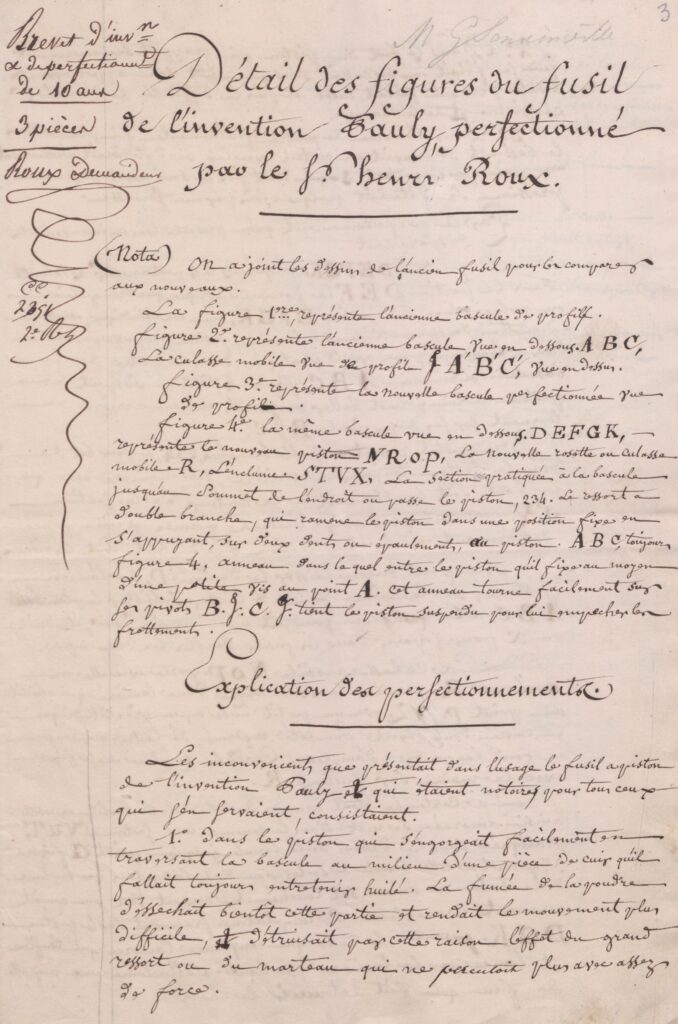 3
Brevet d'invn
& de perfectionnt
de 10 ans
3 pièces
Roux Demandeur
2351
Détail des figures du fusil
de l'invention Pauly, perfectionné
par le Sr. henri Roux.
(Nota) On a joint les dessins de l'ancien fusil pour les comparer
aux nouveaux.
La figure 1re, représente l'ancienne bascule de profil.
figure 2e représente l'ancienne bascule vue en dessous. A B C,
La culasse mobile vue de profil A' B' C', vue en dessus.
figure 3e représente la nouvelle bascule perfectionnée vue
de profil.
figure 4e la même bascule vue en dessous. D E F G K,
représente le nouveau piston N R O P, La nouvelle rosette ou culasse
mobile R, L'enclume S T V X, La section pratiquée à la bascule
jusqu'au sommet de l'endroit ou passe le piston, 234. Le ressort a
double branche, qui ramene le piston dans une position fixe en
s'appuyant, sur deux dents ou épaulements, au piston A B C, toujours
figure 4, anneau dans le quel entre le piston qu'il fixe au moyen
d'une petite vis au point A. Cet anneau tourne facilement sur
ses pivots B. J. C. J. tient le piston suspendu pour lui empecher les
frottements.
Explication des perfectionnements.
Les inconvenients que présentait dans l'usage le fusil a piston
de l'invention Pauly et qui étaient notoires pour tous ceux
qui s'en servaient, consistaient.
1o. dans le piston qui s'engorgeait facilement en
traversant la bascule au milieu d'une pièce de cuir qu'il
fallait toujours entretenir huilé. La fumée de la poudre
dessechait bientot cette partie et rendait le mouvement plus
difficile, et détruisait par cette raison l'effet du grand
ressort ou du marteau qui ne percutoit plus avec assez
de force.